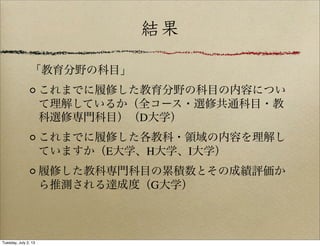 結果
「教育分野の科目」
これまでに履修した教育分野の科目の内容につい
て理解しているか（全コース・選修共通科目・教
科選修専門科目）（D大学）
これまでに履修した各教科・領域の内容を理解し
ていますか（E大学、H大学、I大学）
履修した教科専門科目の累積数とその成績評価か
ら推測される達成度（G大学）
Tuesday, July 2, 13